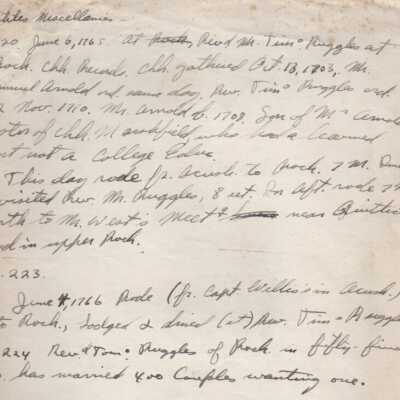 Stiles Miscellanies -
20. June 6, 1765. At Roch, Revd Mr. Timo Ruggles at
Roch. Chh Records. Chh gathered Oct. 13, 1703, Mr.
amuel Arnold ord. same day, Rev. Timo Ruggles ord.
2 Nov. 1710. Mr. Arnold d. 1709. Son of Mr Arnold
stor of Chh. Marshfield who had a learned
ut not a College Educ.
This day rode fr. Acush. to Roch. 7 M.
visited Rev. Mr. Ruggles, 8 aet. In Aft. rode 7 M
th to Mr. West's Meetg near Quittic
d in upper Roch.
. 223.
June 4, 1766 Rode (fr. Capt Willis's in Acush.)
to Roch., Lodged & dined (at) Rev. Timo Ruggle
224 Rev. Timo Ruggles of Roch. in fifty-five
s. has married 400 Couples wanting one.